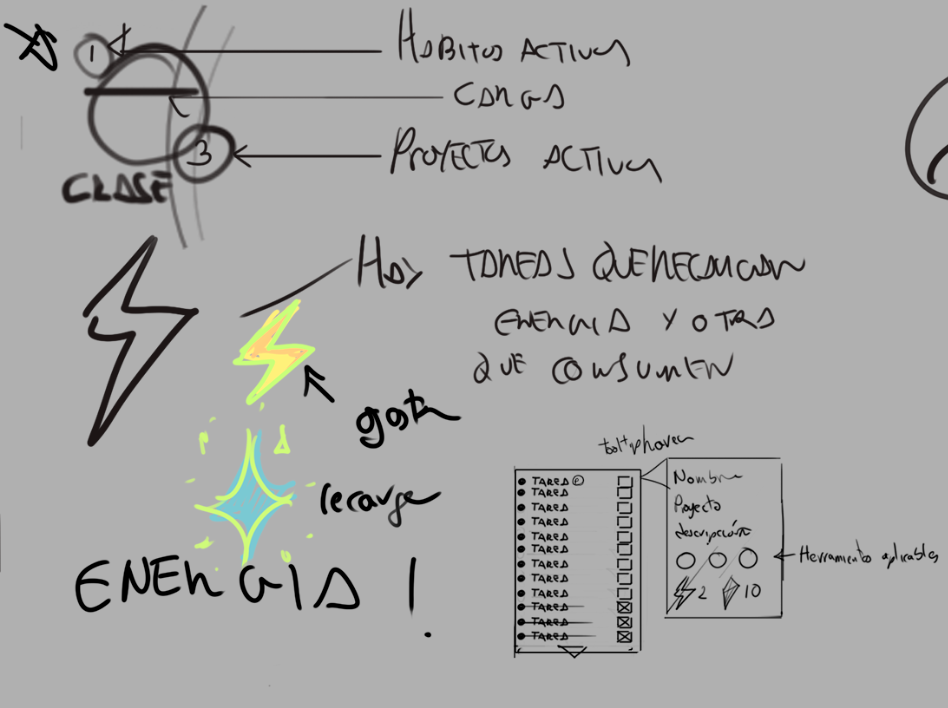 1
HABITOS ACTIVOS
CARGA
3
PROYECTOS ACTIVOS
CLASE
HAY TAREAS QUE RECARGAN
ENERGIA Y OTRAS
QUE CONSUMEN
gasta
recarga
ENERGIA!
TAREA
TAREA
TAREA
TAREA
TAREA
TAREA
TAREA
TAREA
TAREA
TAREA
TAREA
TAREA
Nombre
Proyecto
descripción
Herramientas aplicables
2 10